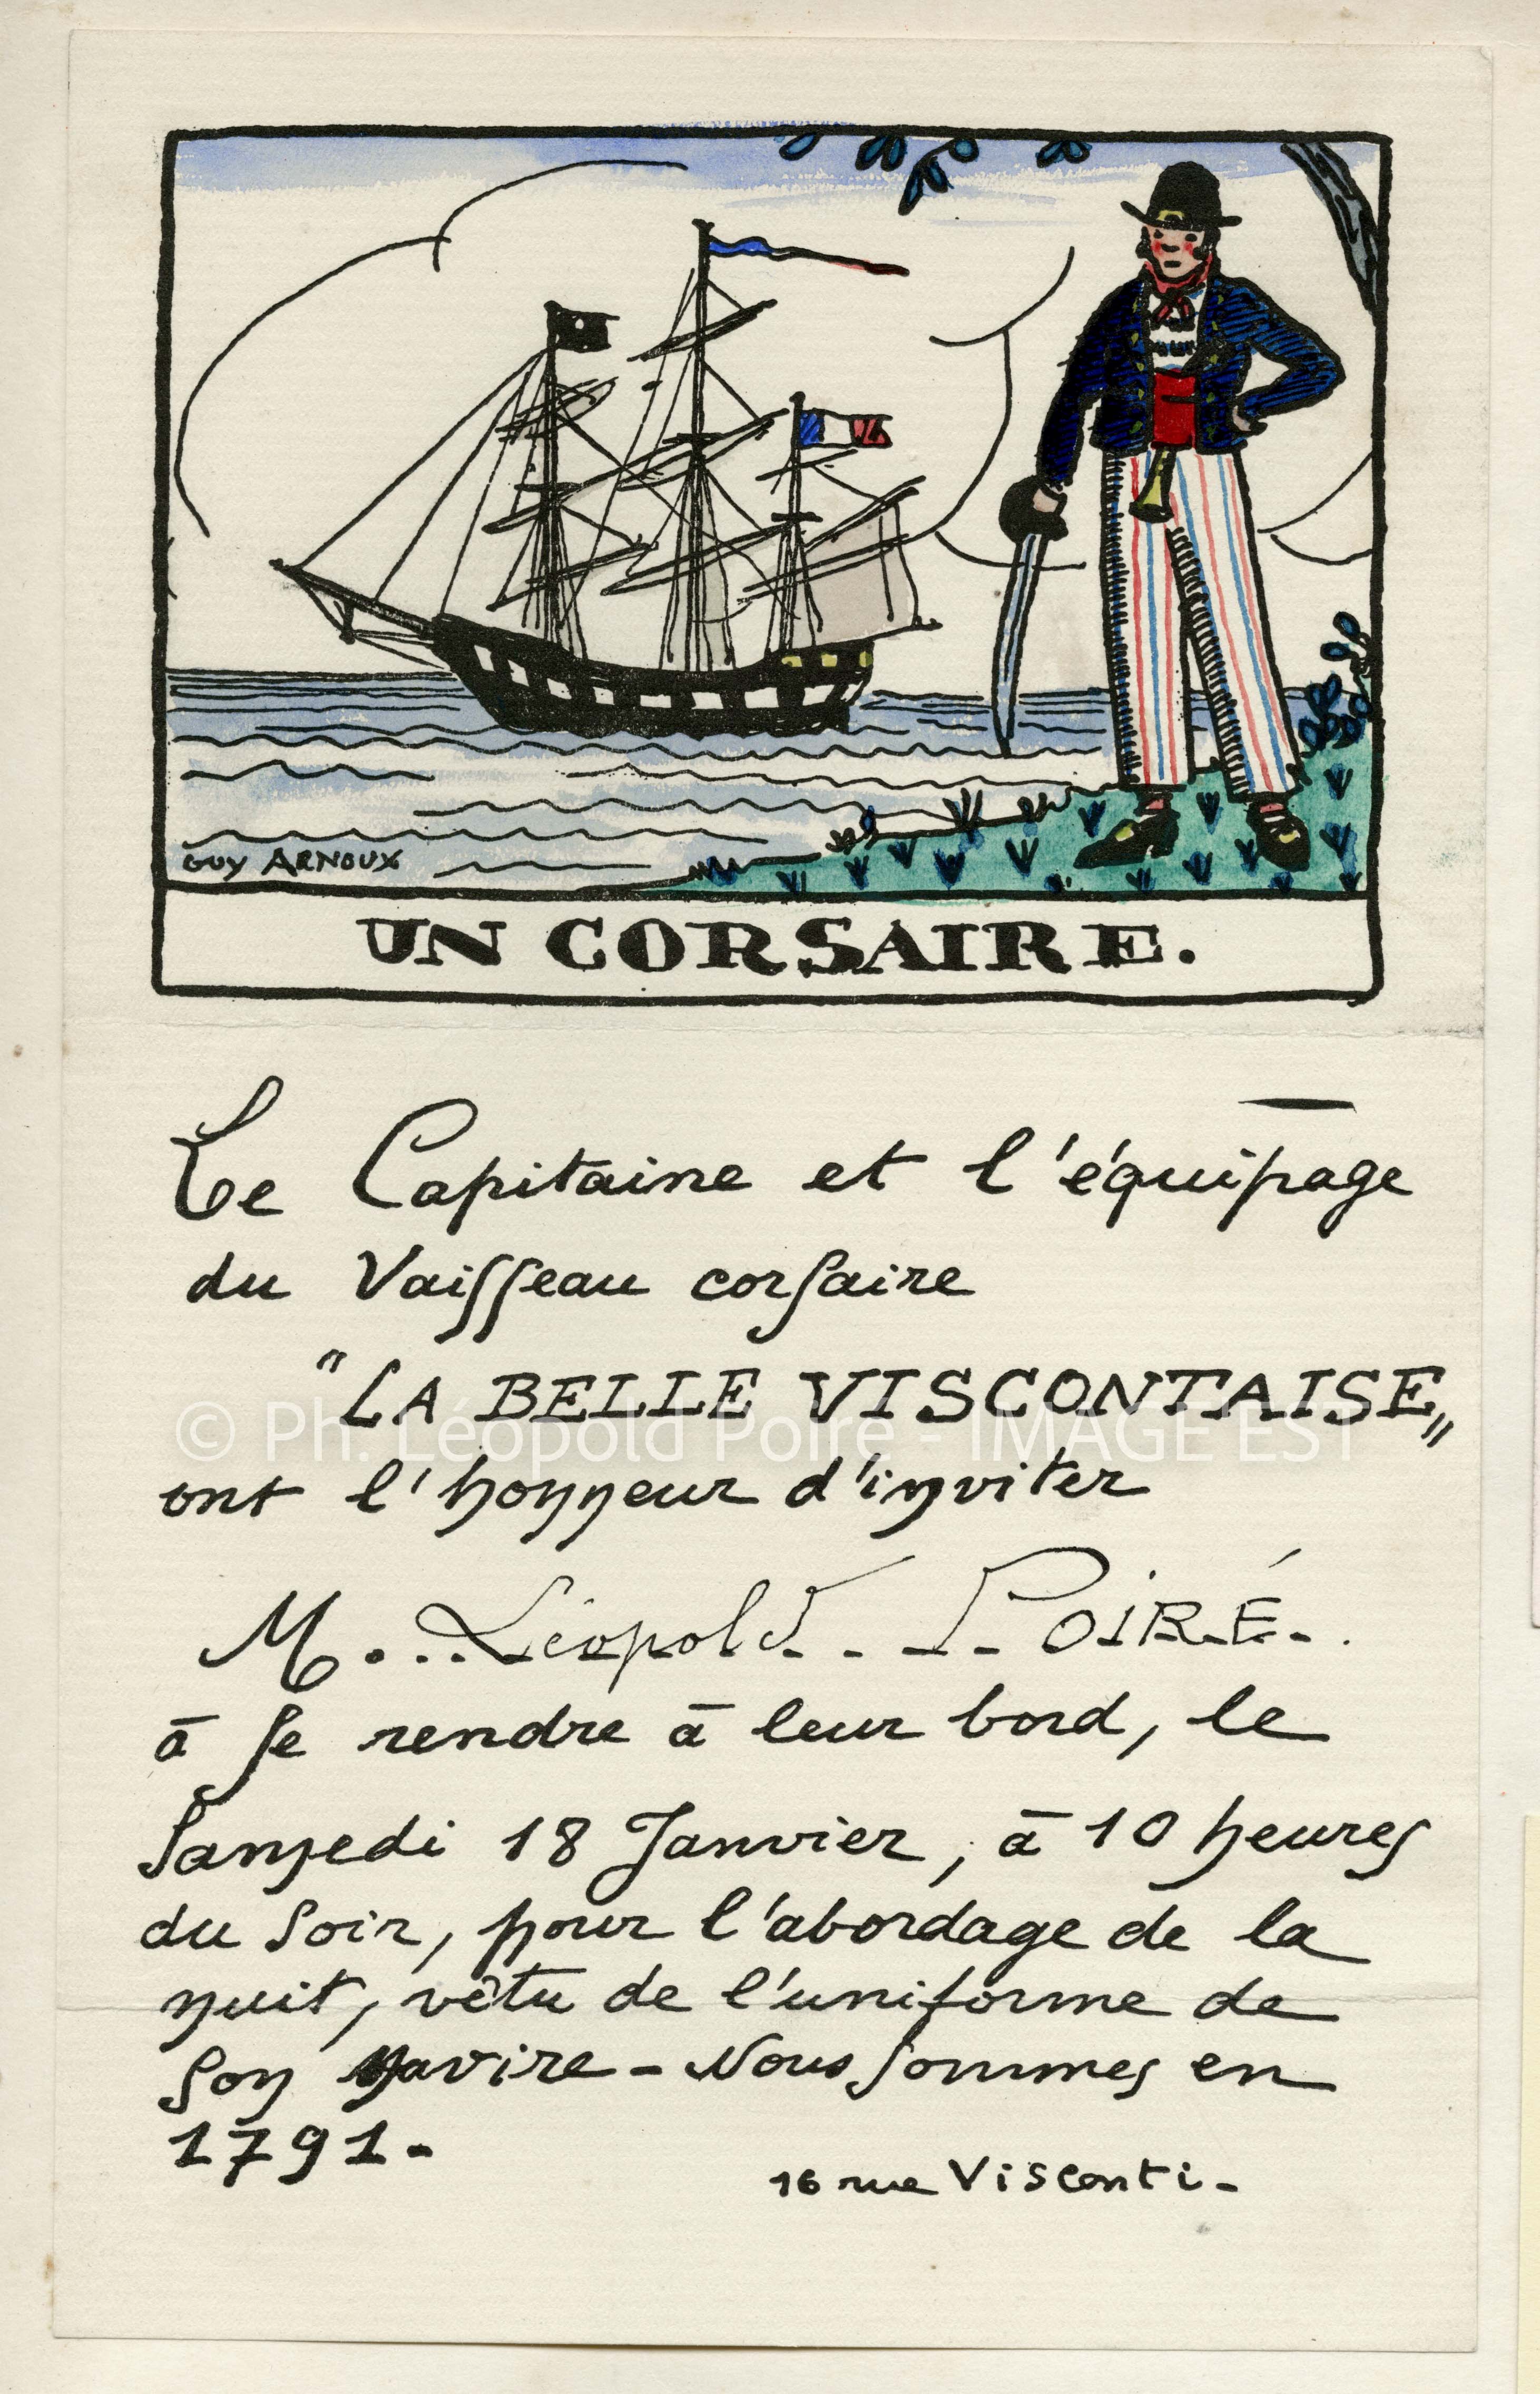 GUY ARNOUX
UN CORSAIRE.
Le Capitaine et l'équipage
du Vaisseau corsaire
"LA BELLE VISCONTAISE"
© Ph. Léopold Poiré - IMAGE EST
ont l'honneur d'inviter
M. Léopold POIRÉ
à se rendre à leur bord, le
Samedi 18 Janvier, à 10 heures
du soir, pour l'abordage de la
nuit, vêtu de l'uniforme de
son navire - Nous sommes en
1791 -
16 rue Visconti -